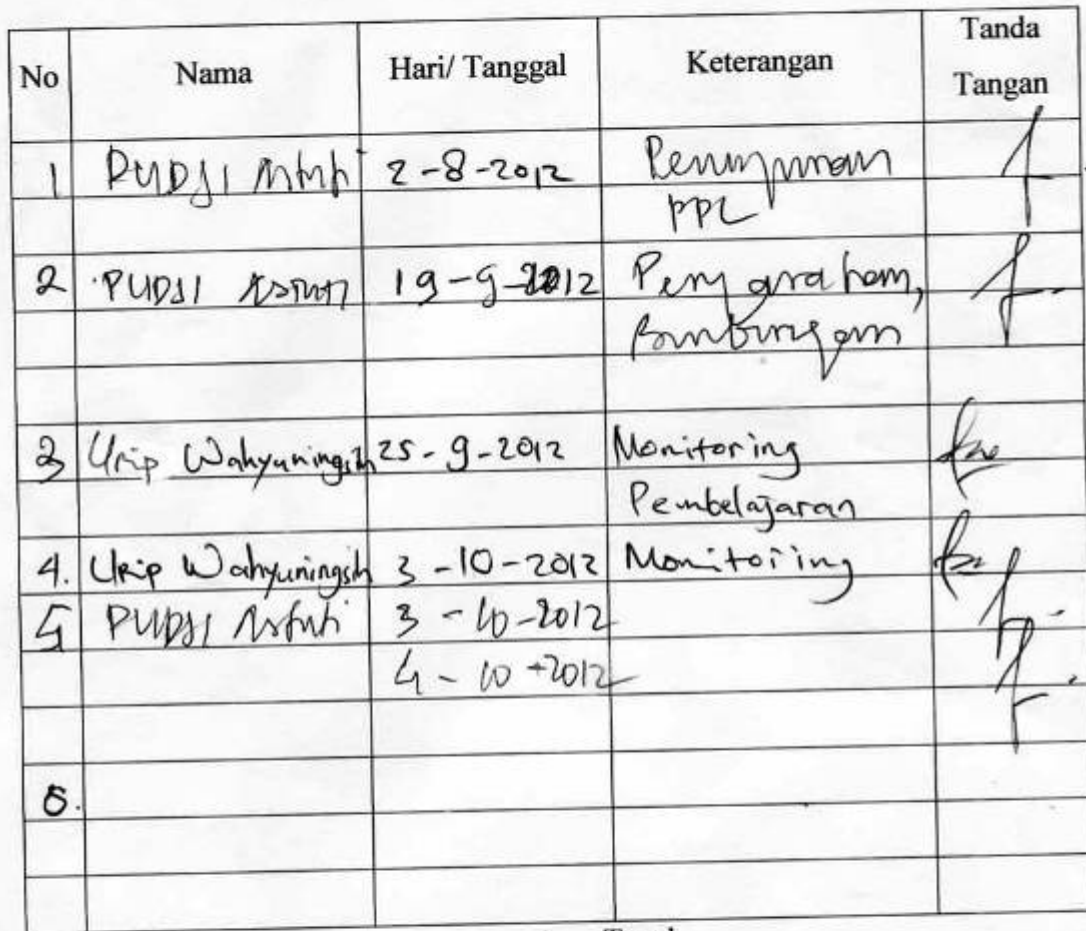 No Nama Hari/ Tanggal Keterangan Tanda Tangan
1 PUDJI Astuti 2-8-2012
PPL
2 PUDJI Astuti 19-9-2012 Pengarahan,
Bimbingan
3 Urip Wahyuningsih 25-9-2012 Monitoring
Pembelajaran
4. Urip Wahyuningsih 3-10-2012 Monitoring
5 PUDJI Astuti 3-10-2012
4-10-2012